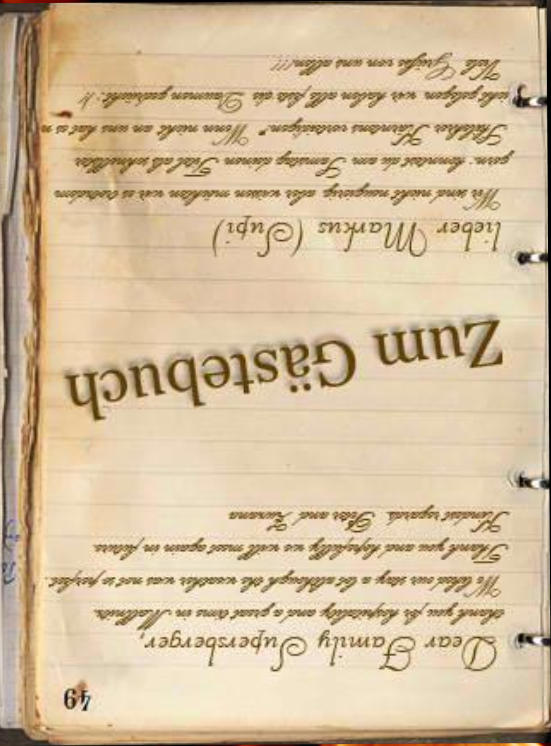 49
Dear Family Supersberger,
thank you for hospitality and a great time in Mallnitz.
We liked our stay a lot although the weather was not so perfect.
Thank you and hopefully we will meet again in future.
Kindest regards. Peter and Zuzana
Zum Gästebuch
lieber Markus (Supi)
Wir sind nicht neugierig aber wissen möchten wir es trotzdem
gern: konntest du am Samstag deinen Titel als schnellster
Skilehrer Kärntens verteidigen? Wenn nicht an uns hat es n
nicht gelegen wir haben alle fest die Daumen gedrückt :)
Viele Grüße von uns allen!!!